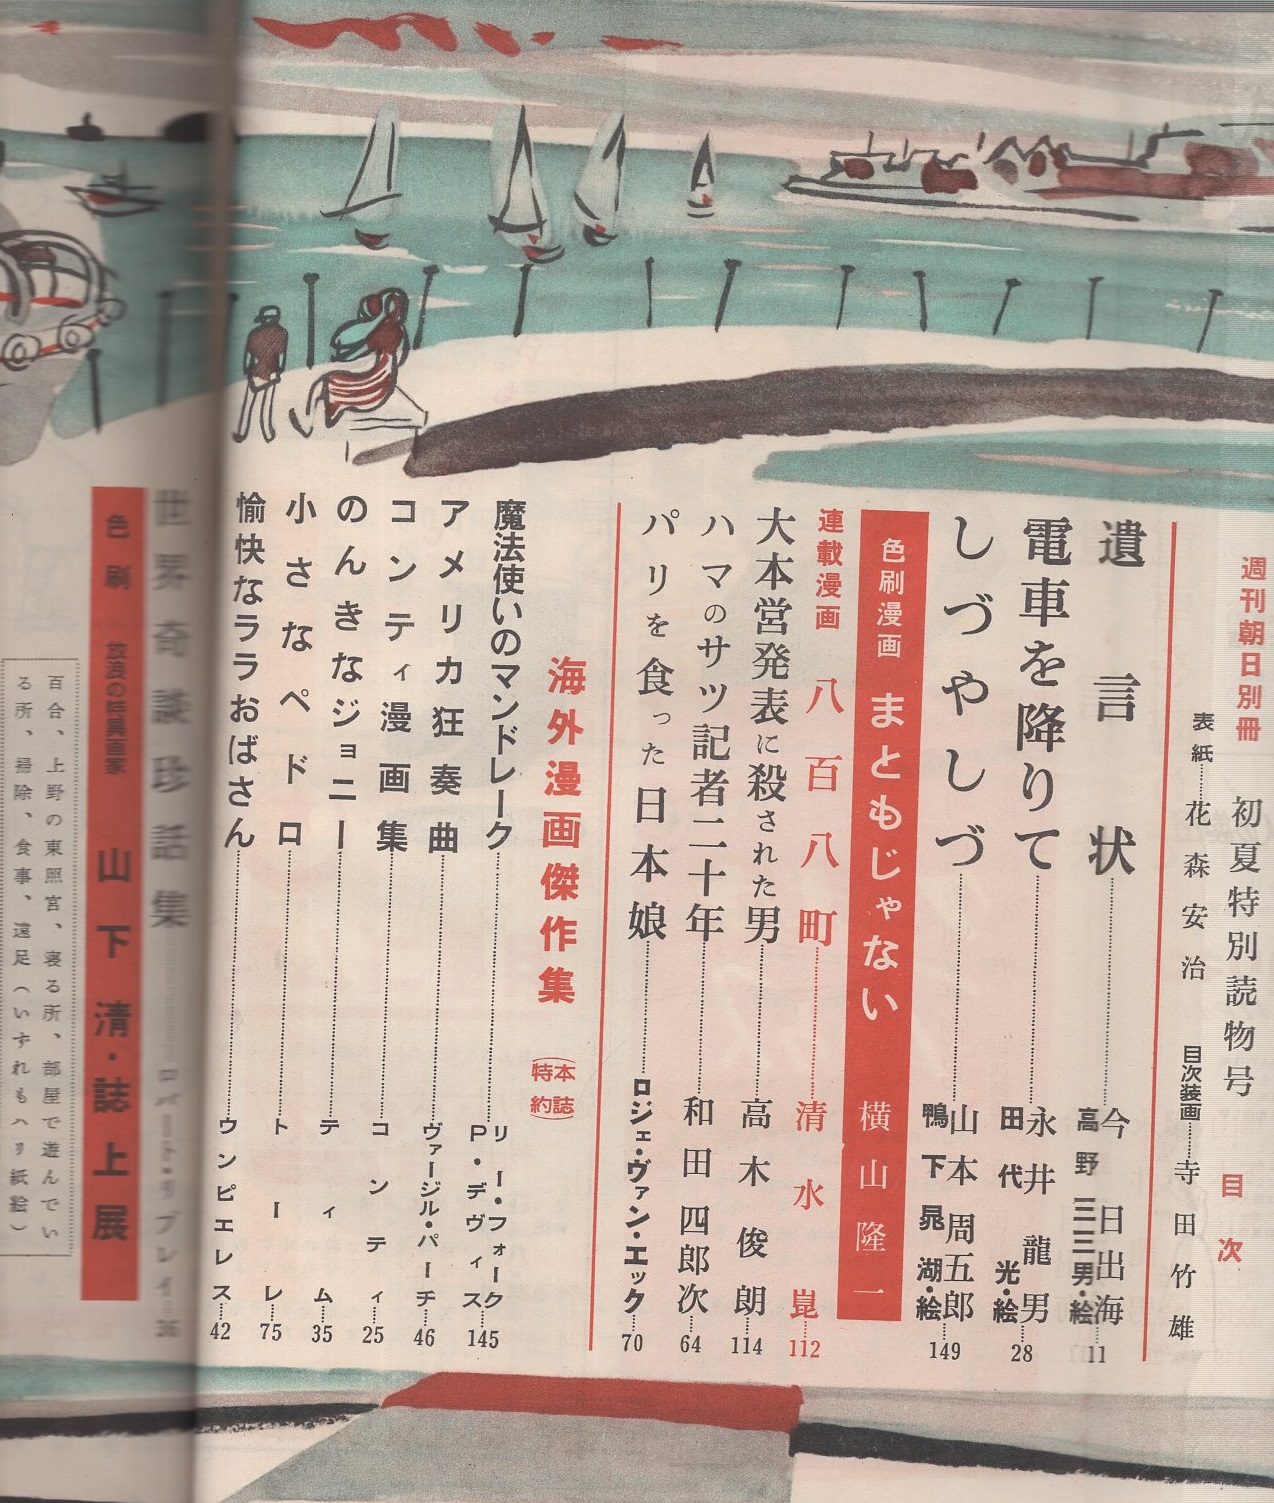 週刊朝日別冊
初夏特別読物号 目次
表紙……花森安治 目次装画……寺田竹雄
遺言状……今日出海 高野三三男・絵 11
電車を降りて……永井龍男 田代光・絵 28
しづやしづ……山本周五郎 鴨下晁湖・絵 149
色刷漫画 まともじゃない 横山隆一
連載漫画 八百八町……清水崑……112
大本営発表に殺された男……高木俊朗……114
ハマのサツ記者二十年……和田四郎次……64
パリを食った日本娘……ロジェ・ヴァン・エック……70
海外漫画傑作集 (本誌特約)
魔法使いのマンドレーク……リー・フォーク P・デヴィス……145
アメリカ狂奏曲……ヴァージル・パーチ……46
コンティ漫画集……コンティ……25
のんきなジョニー……ティム……35
小さなペドロ……トーレ……75
愉快なララおばさん……ウンピエレス……42
世界奇談珍話集……ロバート・リプレイ……36
色刷 放浪の特異画家 山下清・誌上展
百合、上野の東照宮、寝る所、部屋で遊んでい
る所、掃除、食事、遠足(いずれもハリ紙絵)